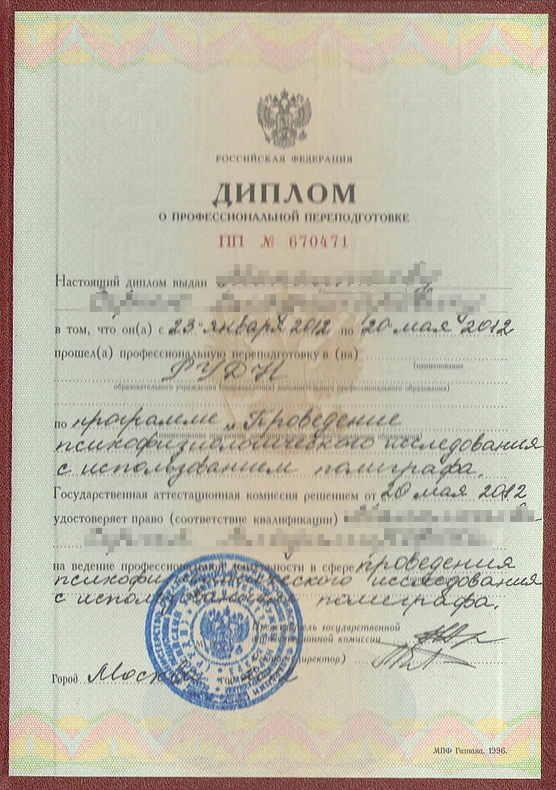 РОССИЙСКАЯ ФЕДЕРАЦИЯ
ДИПЛОМ
О ПРОФЕССИОНАЛЬНОЙ ПЕРЕПОДГОТОВКЕ
ПП № 670471
Настоящий диплом выдан
в том, что он(а) с 23 января 2012 по 20 мая 2012
прошел(а) профессиональную переподготовку в (на)
(наименование
РУДН
образовательного учреждения дополнительного профессионального образования)
по программе „Проведение
психофизиологического исследования
с использованием полиграфа.
Государственная аттестационная комиссия решением от 20 мая 2012
удостоверяет право (соответствие квалификации)
на ведение профессиональной деятельности в сфере проведения
психофизиологического исследования
с использованием полиграфа.
государственной
комиссии
директор)
Город Москва
МПФ Гознака. 1996.